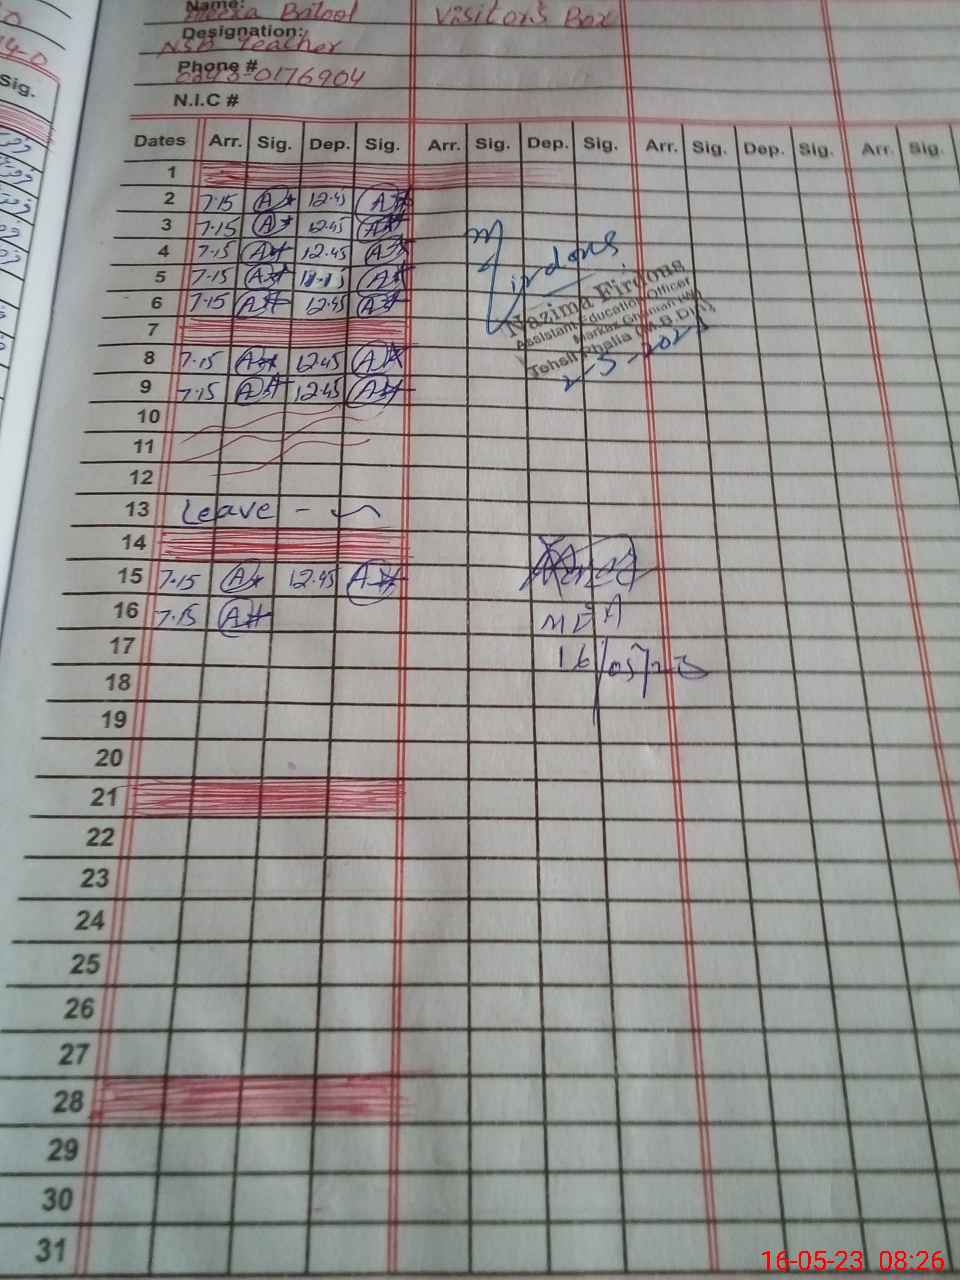 Name: Batool Visitor's Box
Designation:
NSB Teacher
Phone #
0176904
N.I.C #
Sig.
Dates Arr. Sig. Dep. Sig. Arr. Sig. Dep. Sig. Arr. Sig. Dep. Sig. Arr. Sig.
1
2 7.15 12.45
3 7.15 12.45
4 7.15 12.45
5 7.15
6 7.15 12.45
7
8 7.15 12.45
9 7.15 12.45
10
11
12
13 Leave
14
15 7.15 12.45
16 7.15
17
18
19
20
21
22
23
24
25
26
27
28
29
30
31
Firdous
Nazima Firdous
Assistant Education Officer
Markaz Ghanian (W)
Tehsil Phalia (M.B.Din)
MEA
16/05/23
16-05-23 08:26